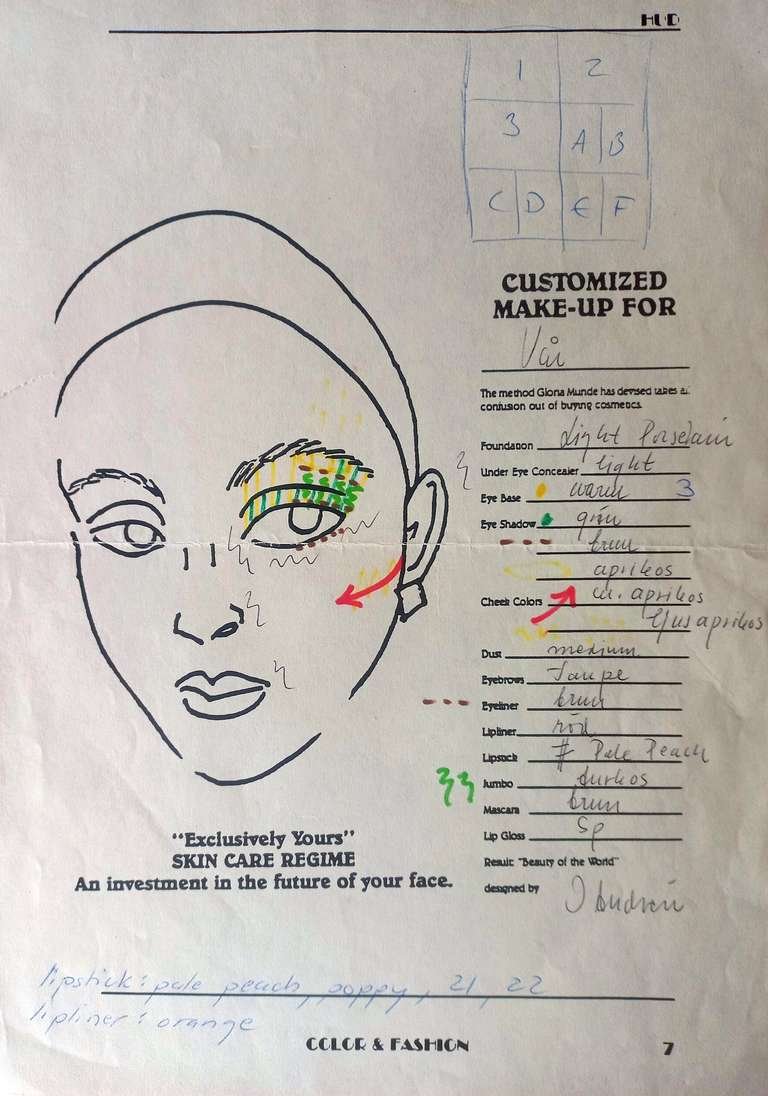 HUD
1 2
3 A B
C D E F
CUSTOMIZED
MAKE-UP FOR
Vår
The method Gloria Munde has devised takes all
confusion out of buying cosmetics.
Foundation Light Porselain
Under Eye Concealer light
Eye Base warm 3
Eye Shadow grön
brun
aprikos
Cheek Colors m. aprikos
ljusaprikos
Dust medium
Eyebrows Taupe
Eyeliner brun
Lipliner röd
Lipstick # Pale Peach
Jumbo turkos
Mascara brun
Lip Gloss
Result: "Beauty of the World"
designed by
"Exclusively Yours"
SKIN CARE REGIME
An investment in the future of your face.
lipstick: pale peach, poppy, 21, 22
lipliner: orange
COLOR & FASHION 7